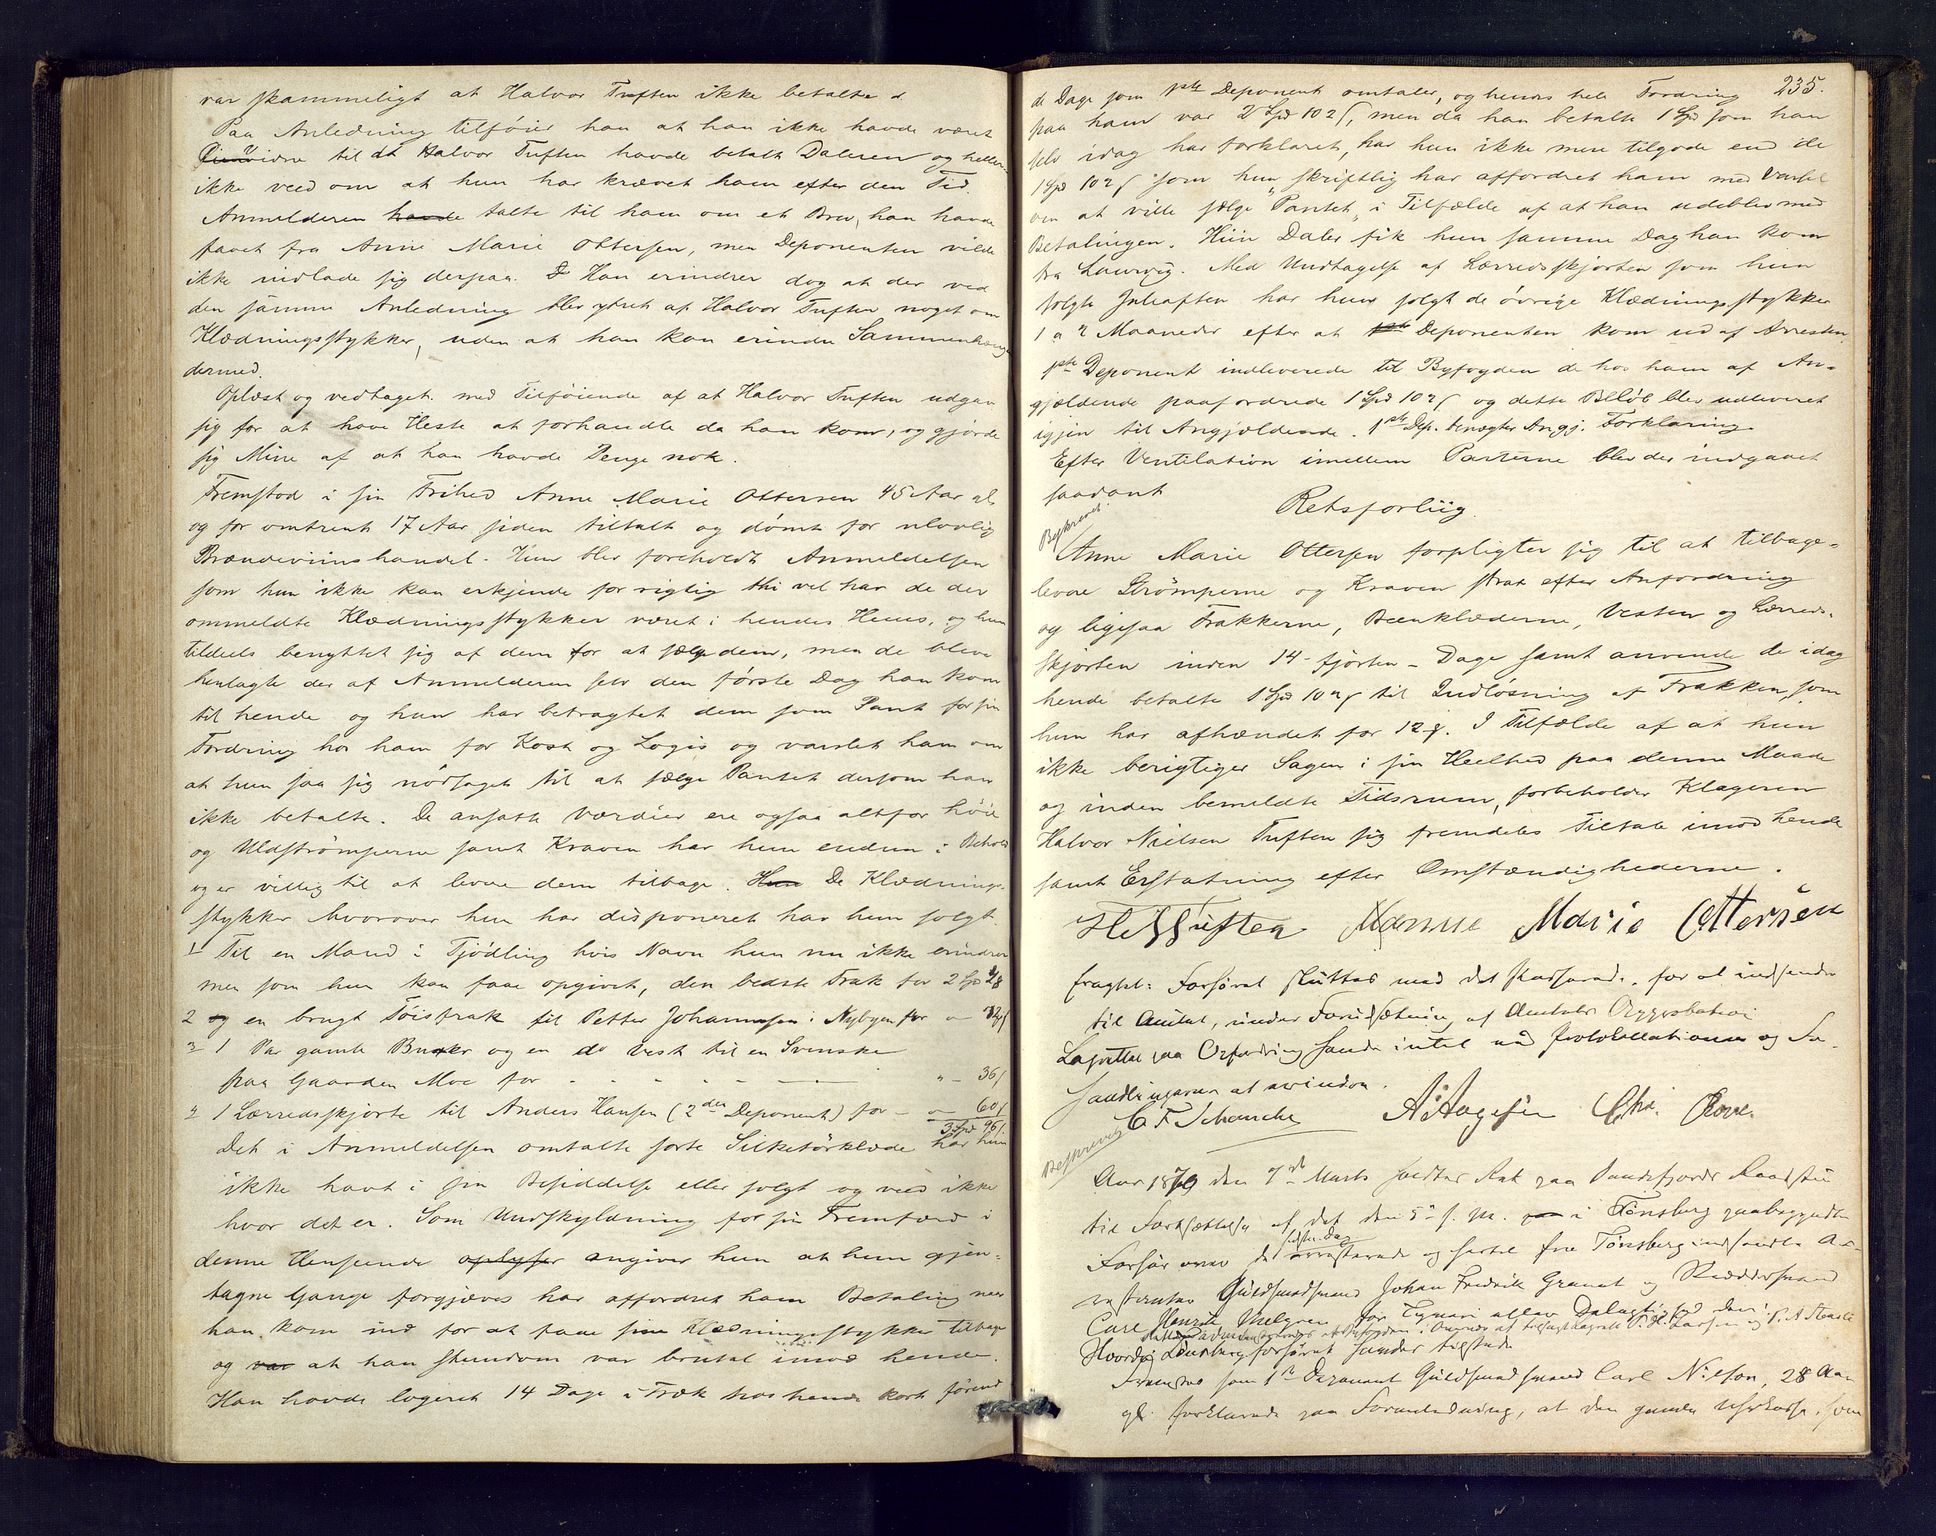 var skammeligt at Halvor Tuften ikke betalte d.
Paa Anledning tilføier han at han ikke havde været
Vidne til at Halvor Tuften havde betalt Daleren og heller
ikke veed om at hun har krævet ham efter den Tid.
Anmelderen havde talte til ham om et Brev, han havde
faaet fra Anne Marie Ottersen, men Deponenten vilde
ikke indlade sig derpaa. Han erindrer dog at der ved
den samme Anledning blev ytret af Halvor Tuften noget om
Klædningsstykker, uden at han kan erindre Sammenhængen
dermed.
Oplæst og vedtaget. med Tilføiende af at Halvor Tuften udgav
sig for at have Heste at forhandle da han kom, og gjorde
sig Mine af at han havde Penge nok.
Fremstod i sin Frihed Anne Marie Ottersen 45 Aar gl.
og for omtrent 17 Aar siden tiltalt og dømt for ulovlig
Brændeviinshandel. Hun blev foreholdt Anmeldelsen
som hun ikke kan erkjende for rigtig thi vel har de der
ommeldte Klædningsstykker været i hendes Huus, og hun
tildeels benyttet sig af dem for at sælge dem, men de bleve
henlagte der af Anmelderen selv den første Dag han kom
til hende og hun har betragtet dem som Pant for sin
Fordring hos ham for Kost og Logis og varslet ham om
at hun saa sig nødsaget til at sælge Pantet dersom han
ikke betalte. De ansatte Værdier ere ogsaa altfor høie
og Uldstrømperne samt Kraven har hun endnu i Behold
og er villig til at levere dem tilbage. Hun De Klædnings-
stykker hvorover hun har disponeret har hun solgt.
1 Til en Mand i Tjødling hvis Navn hun nu ikke erindrer
men som hun kan faae opgivet, den bedste Frak for 2 Spd 28
2 og en brugt Tøisfrak til Petter Johannsen i Nybyen for " 92 s
3 1 Par gamle Buxer og en do Vest til en Svenske
paa Gaarden Moe for - - - - - " - 36 s
4 1 Lærredsskjorte til Anders Hansen (2den Deponent) for - " - 60 s
3 Spd 96 s.
Det i Anmeldelsen omtalte sorte Silketørklæde har hun
ikke havt i sin Besiddelse eller solgt og veed ikke
hvor det er. Som Undskyldning for sin Fremfærd i
denne Henseende oplyser angiver hun at hun gjen-
tagne Gange forgjæves har affordret ham Betaling naar
han kom ind for at faae sine Klædningsstykker tilbage
og var at han stundom var brutal imod hende.
Han havde logeret 14 Dage i Træk hos hende kort førend
235.
de Dage som 1ste Deponent omtaler, og hendes hele Fordring
paa ham var 2 Spd 102 s, men da han betalte 1 Spd som han
selv idag har forklaret, har hun ikke mere tilgode end de
1 Spd 102 s som hun skriftlig har affordret ham med Varsel
om at ville sælge "Pantet" i Tilfælde af at han udeblev med
Betalingen. Hiin Daler fik hun samme Dag han kom
fra Laurvig. Med Undtagelse af Lærredsskjorten som hun
solgte Juleaften har hun solgt de øvrige Klædningsstykker
1 a 2 Maaneder efter at Deponenten kom ud af Arresten.
1ste Deponent indleverede til Byfogden de hos ham af An-
gjældende paafordrede 1 Spd 102 s og dette Beløb blev udleveret
igjen til Angjældende. 1ste Dep. benægter Angj. Forklaring
Efter Ventilation imellem Parterne blev der indgaaet
saadant
Retsforliig.
Beskrevet.
Anne Marie Ottersen forpligter sig til at tilbage-
levere Strømperne og Kraven strax efter Anfordring
og ligesaa Frakkerne, Beenklæderne, Vesten og Lærreds-
skjorten inden 14 - fjorten - Dage samt anvende de idag
hende betalte 1 Spd 102 s til Indløsning af Frakken, som
hun har afhændet for 12 s. I Tilfælde af at hun
ikke berigtiger Sagen i sin Heelhed paa denne Maade
og inden bemeldte Tidsrum, forbeholder Klageren
Halvor Nielsen Tuften sig fremdeles Tiltale imod hende
samt Erstatning efter Omstændighederne.
H N Tuften Marie Ottersen
Forhøret sluttes med det Passerede, for at indsendes
til Amtet, under Forudsætning af Amtets Approbation
paa
handlingerne at
C F Schanche A. Aagesen Chr. Rove.
Beskrevet
Aar 1870 den 7de Marts holdtes Ret paa Sandefjords Raadstue
til Fortsættelse af det den 5te s. M. i Tønsberg paabegyndte
Forhør over de sidste Dag arresterede og hertil fra Tønsberg indsendte Ar-
restanter Guldsmedsvend Johan Fredrik Granat og Skræddersvend
Carl Henrik for Tyveri eller Delagtighed deri.
Hvorda
Fremstod som 1ste Deponent Guldsmedsvend Carl Nilson, 28 Aar
gl. forklarede paa Foranledning, at den gamle Uhrkasse, som